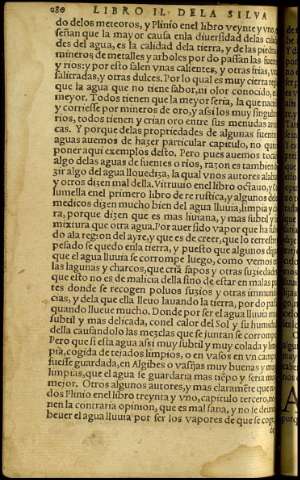 280 LIBRO II. DE LA SILVA
do de los meteoros, y Plinio en el libro veynte y vno,
señan que la mayor causa en la diuersidad de las
des del agua, es la calidad de la tierra, y de las piedras
mineros de metales y arboles por do passan las fuentes
y rios: y por esto salen vnas calientes, y otras frias,
salitradas, y otras dulces. Por lo qual es muy cierta
que la agua que no tiene sabor, ni olor conocido, es
mejor. Todos tienen que la mejor seria, la que
y corriesse por mineros de oro, y assi los muy singulares
rios, todos tienen y crian oro entre sus menudas
cas. Y porque de las propriedades de algunas fuentes
aguas auemos de hazer particular capitulo, no
poner aqui exemplos desto. Pero pues auemos
algo del as aguas de fuentes o rios, razon es tambien
zir algo del agua llouediza, la qual vnos autores
y otros dizen mal della. Vitruuio en el libro octauo, y
lumella en el primero libro de re rustica, y algunos
medicos dizen mucho bien del agua lluuia, limpia
ra, porque dizen que es mas liuiana, y mas subtil y
mixtura que otra agua. Por auer sido vapor que ha
do a la region del ayre, y que es de creer, que lo
pesado se quedo en la tierra, y puesto que algunos
que el agua lluuia se corrompe luego, como vemos
las lagunas y charcos, que cria sapos y otras suziedades
que esto no es de malicia della sino de estar en malas
tes donde se recogen poluos suzios y otras
cias, y dela que ella lleuo lauando la tierra, por do
quando llueue mucho. Donde por ser el agua lluuia
subtil y mas delicada, con el calor del Sol y su
della causandolo las mezclas que se juntan se
Pero que si esta agua assi muy subtil y muy colada y
pia, cogida de tejados limpios, o en vasos en vn campo
fuesse guardada, en Algibes o vasijas muy buenas y
limpias, que el agua se guardaria mas tiempo y seria
mejor. Otros algunos autores, y mas claramente
dos Plinio en el libro treynta y vno, capitulo tercero,
nen la contraria opinion, que es mal sana, y no se
beuer el agua lluuia por ser los vapores de que se